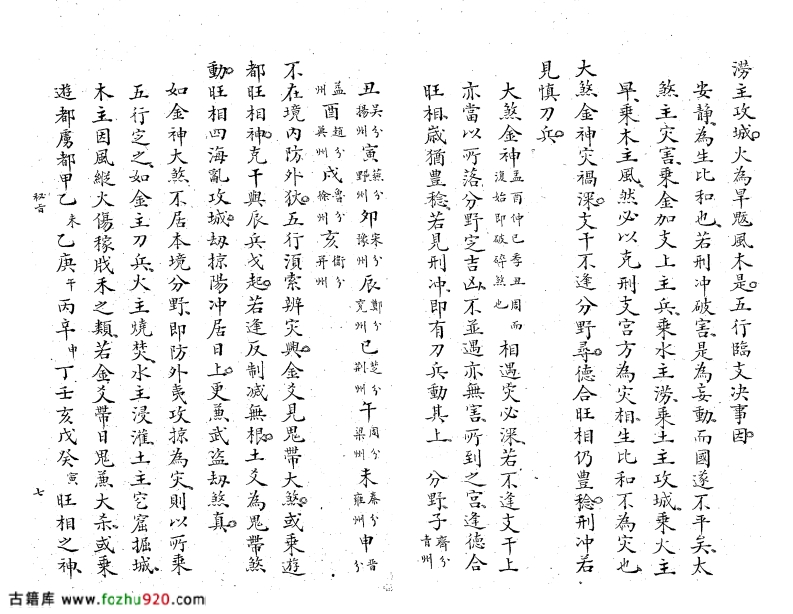 澇主攻城火為旱魃風木是五行臨支决事因
安靜為生比和也若刑冲破害是為妄動而國遂不平矣太
煞主灾害乘金加支上主兵乘水主澇乘土主攻城乘火主
旱乘木主風然必以克刑支宮方為灾相生比和不為灾也
大煞金神灾禍深支干不逢分野尋德合旺相仍豊稔刑冲若
見慎刀兵
大煞金神孟酉仲巳季丑周而復始即破碎煞也相遇灾必深若不逢支干上
亦當以所落分野定吉凶不並遇亦無害所到之宮逢德合
旺相嵗猶豊稔若見刑冲即有刀兵動其上 分野子齊分青州
丑吴分揚州寅燕分野州卯宋分豫州辰鄭分兗州巳楚分荆州午周分梁州未秦分雍州申晋分
益州酉趙分冀州戌魯分徐州亥衛分并州
不在境內防外狄五行湏索辨灾興金爻見鬼帶大煞或乘遊
都旺相神克干與辰兵戈起若逢反制减無根土爻為鬼帶煞
動旺相四海亂攻城刼掠陽冲居日上更兼武盗刼煞真
如金神大煞不居本境分野即防外夷攻掠為灾則以所乘
五行定之如金主刀兵火主燒焚水主浸灌土主穵窟掘城
木主因風縱火傷稼戕禾之類若金爻帶日鬼兼大杀或乘
遊都虜都甲乙未乙庚午丙辛申丁壬亥戊癸寅旺相之神
秘古
七
古籍库 www.fozhu920.com